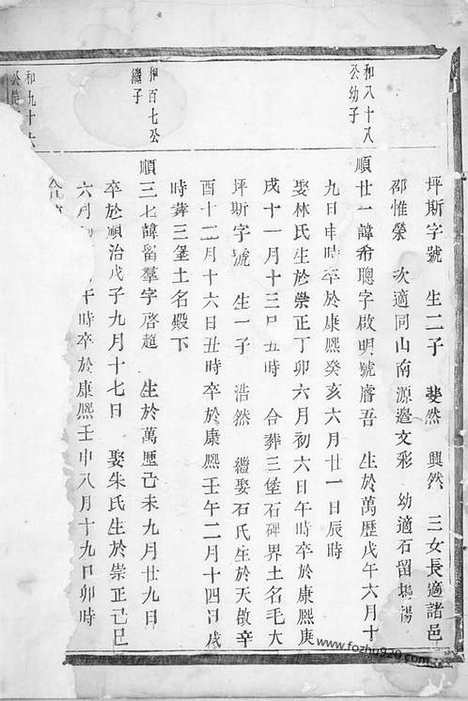 坪斯字號 生二子 斐然 興然 三女長適諸邑
邵惟榮 次適同山南源邊文彩 幼適石留楊
和八十八
公幼子
順廿一諱希聰字啟明號睿吾 生於萬歷戊午六月十
九日申時卒於康熙癸亥六月廿一日辰時
娶林氏生於崇正丁卯六月初六日午時卒於康熙庚
戌十一月十三日丑時 合葬三堡石碑界土名毛大
坪斯字號 生一子 浩然 繼娶石氏生於天啟辛
酉十二月十六日丑時卒於康熙壬午二月十四日戌
時葬三堡土名殿下
百七公
繼子
順三七諱留羣字啓超 生於萬歷己未九月廿九日
卒於順治戊子九月十七日 娶朱氏生於崇正己巳
和九十六
公長
六月 午時卒於康熙壬申八月十九日卯時
合
www.fozhu920.com